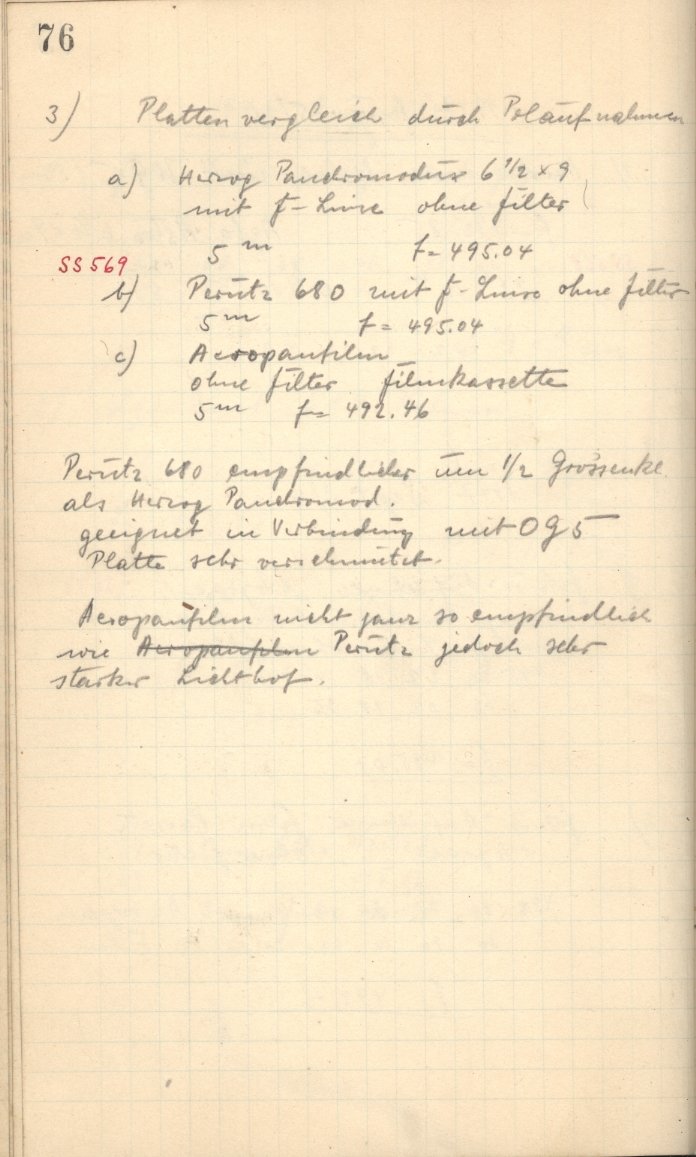 76
3) Plattenvergleich durch Polaufnahmen
a) Herzog Panchromodux 6 1/2 x 9
mit f-Linse ohne Filter
5 m f = 495.04
SS 569
b) Perutz 680 mit f-Linse ohne Filter
5 m f = 495.04
c) Aeropanfilm
ohne Filter Filmkassette
5 m f = 492.46
Perutz 680 empfindlicher um 1/2 Grössenkl.
als Herzog Panchromod.
geeignet in Verbindung mit OG5
Platte sehr verschmutzt.
Aeropanfilm nicht ganz so empfindlich
wie Aeropanfilm Perutz jedoch sehr
starker Lichthof.